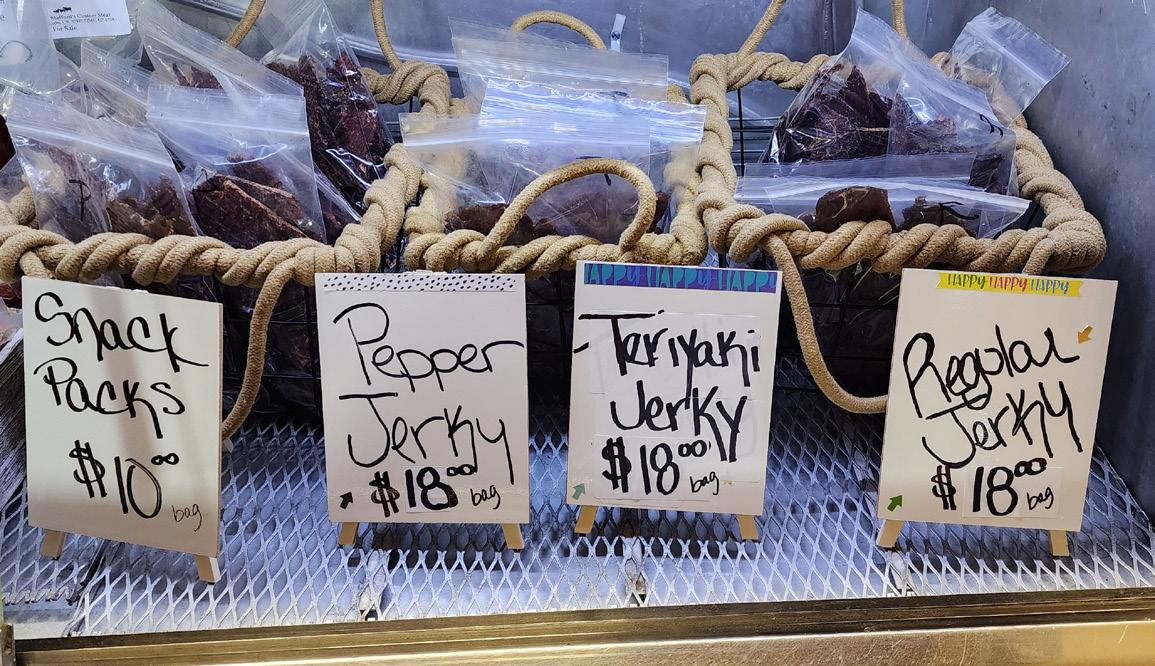 For Sale
Snack
Packs
$10.00
bag
Pepper
Jerky
$18.00
bag
APPY HAPPY HAPPY
Teriyaki
Jerky
$18.00
bag
HAPPY HAPPY HAPPY
Regular
Jerky
$18.00
bag